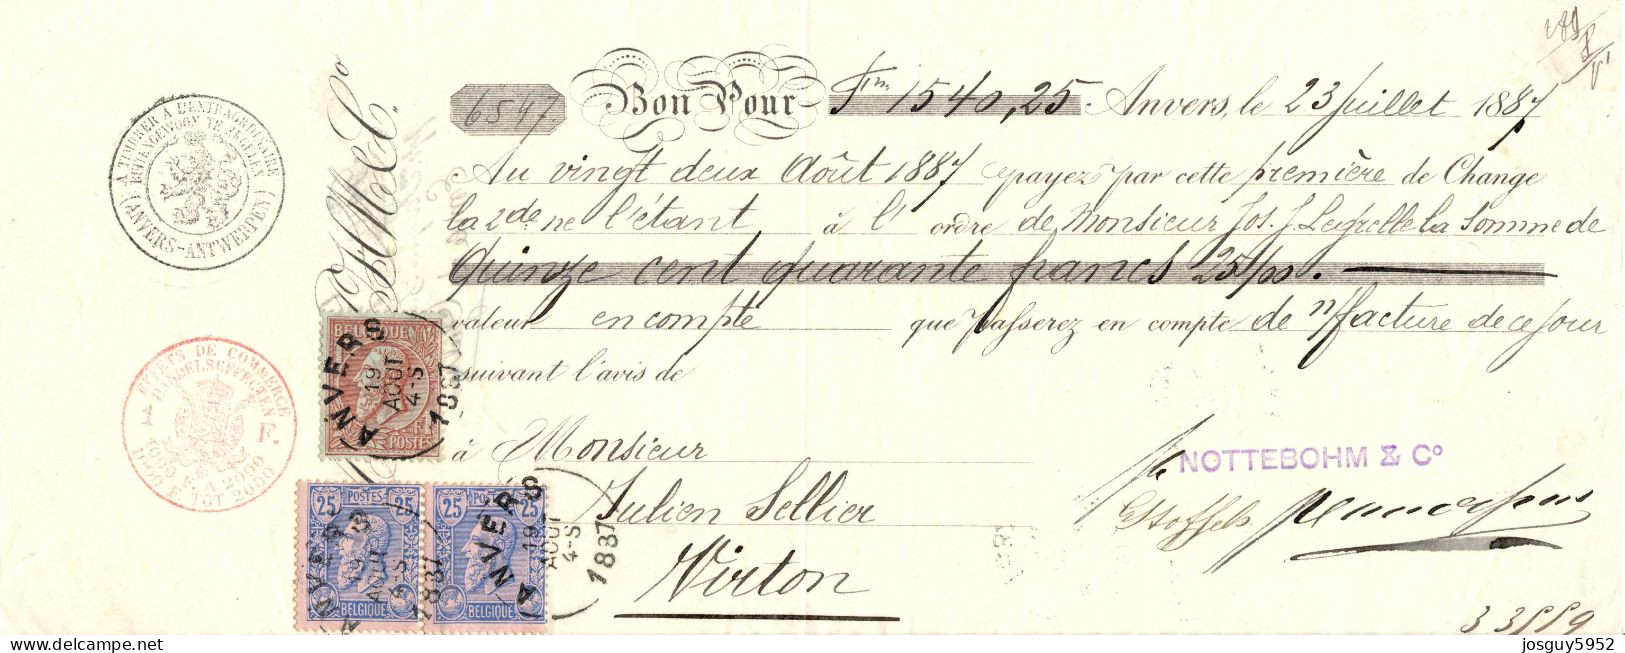 6847 Bon Pour Fcs 1540,25. Anvers, le 23 Juillet 1887
Au vingt deux Août 1887 payez par cette première de Change
la 2de ne l'étant à l' ordre de Monsieur Jos. J. Legrelle la Somme de
Quinze cent quarante francs 25/00.
valeur en compte que passerez en compte de n/facture de ce jour
suivant l'avis de
à Monsieur
Julien Sellier
Virton
NOTTEBOHM & Co
Stoffels
A TIMBRER A L'EXTRAORDINAIRE
BUITENGEWOON TE ZEGELEN
(ANVERS-ANTWERPEN)
EFFETS DE COMMERCE
HANDELSEFFECTEN
1 F.
1000 F. A 2000
1000 F. TOT 2000
BELGIQUE
POSTES
ANVERS
19
AOUT
4-S
1887
25 POSTES 25
BELGIQUE
ANVERS
19
AOUT
4-S
1887
25 POSTES 25
BELGIQUE
ANVERS
19
AOUT
4-S
1887
delcampe.net
josguy5952